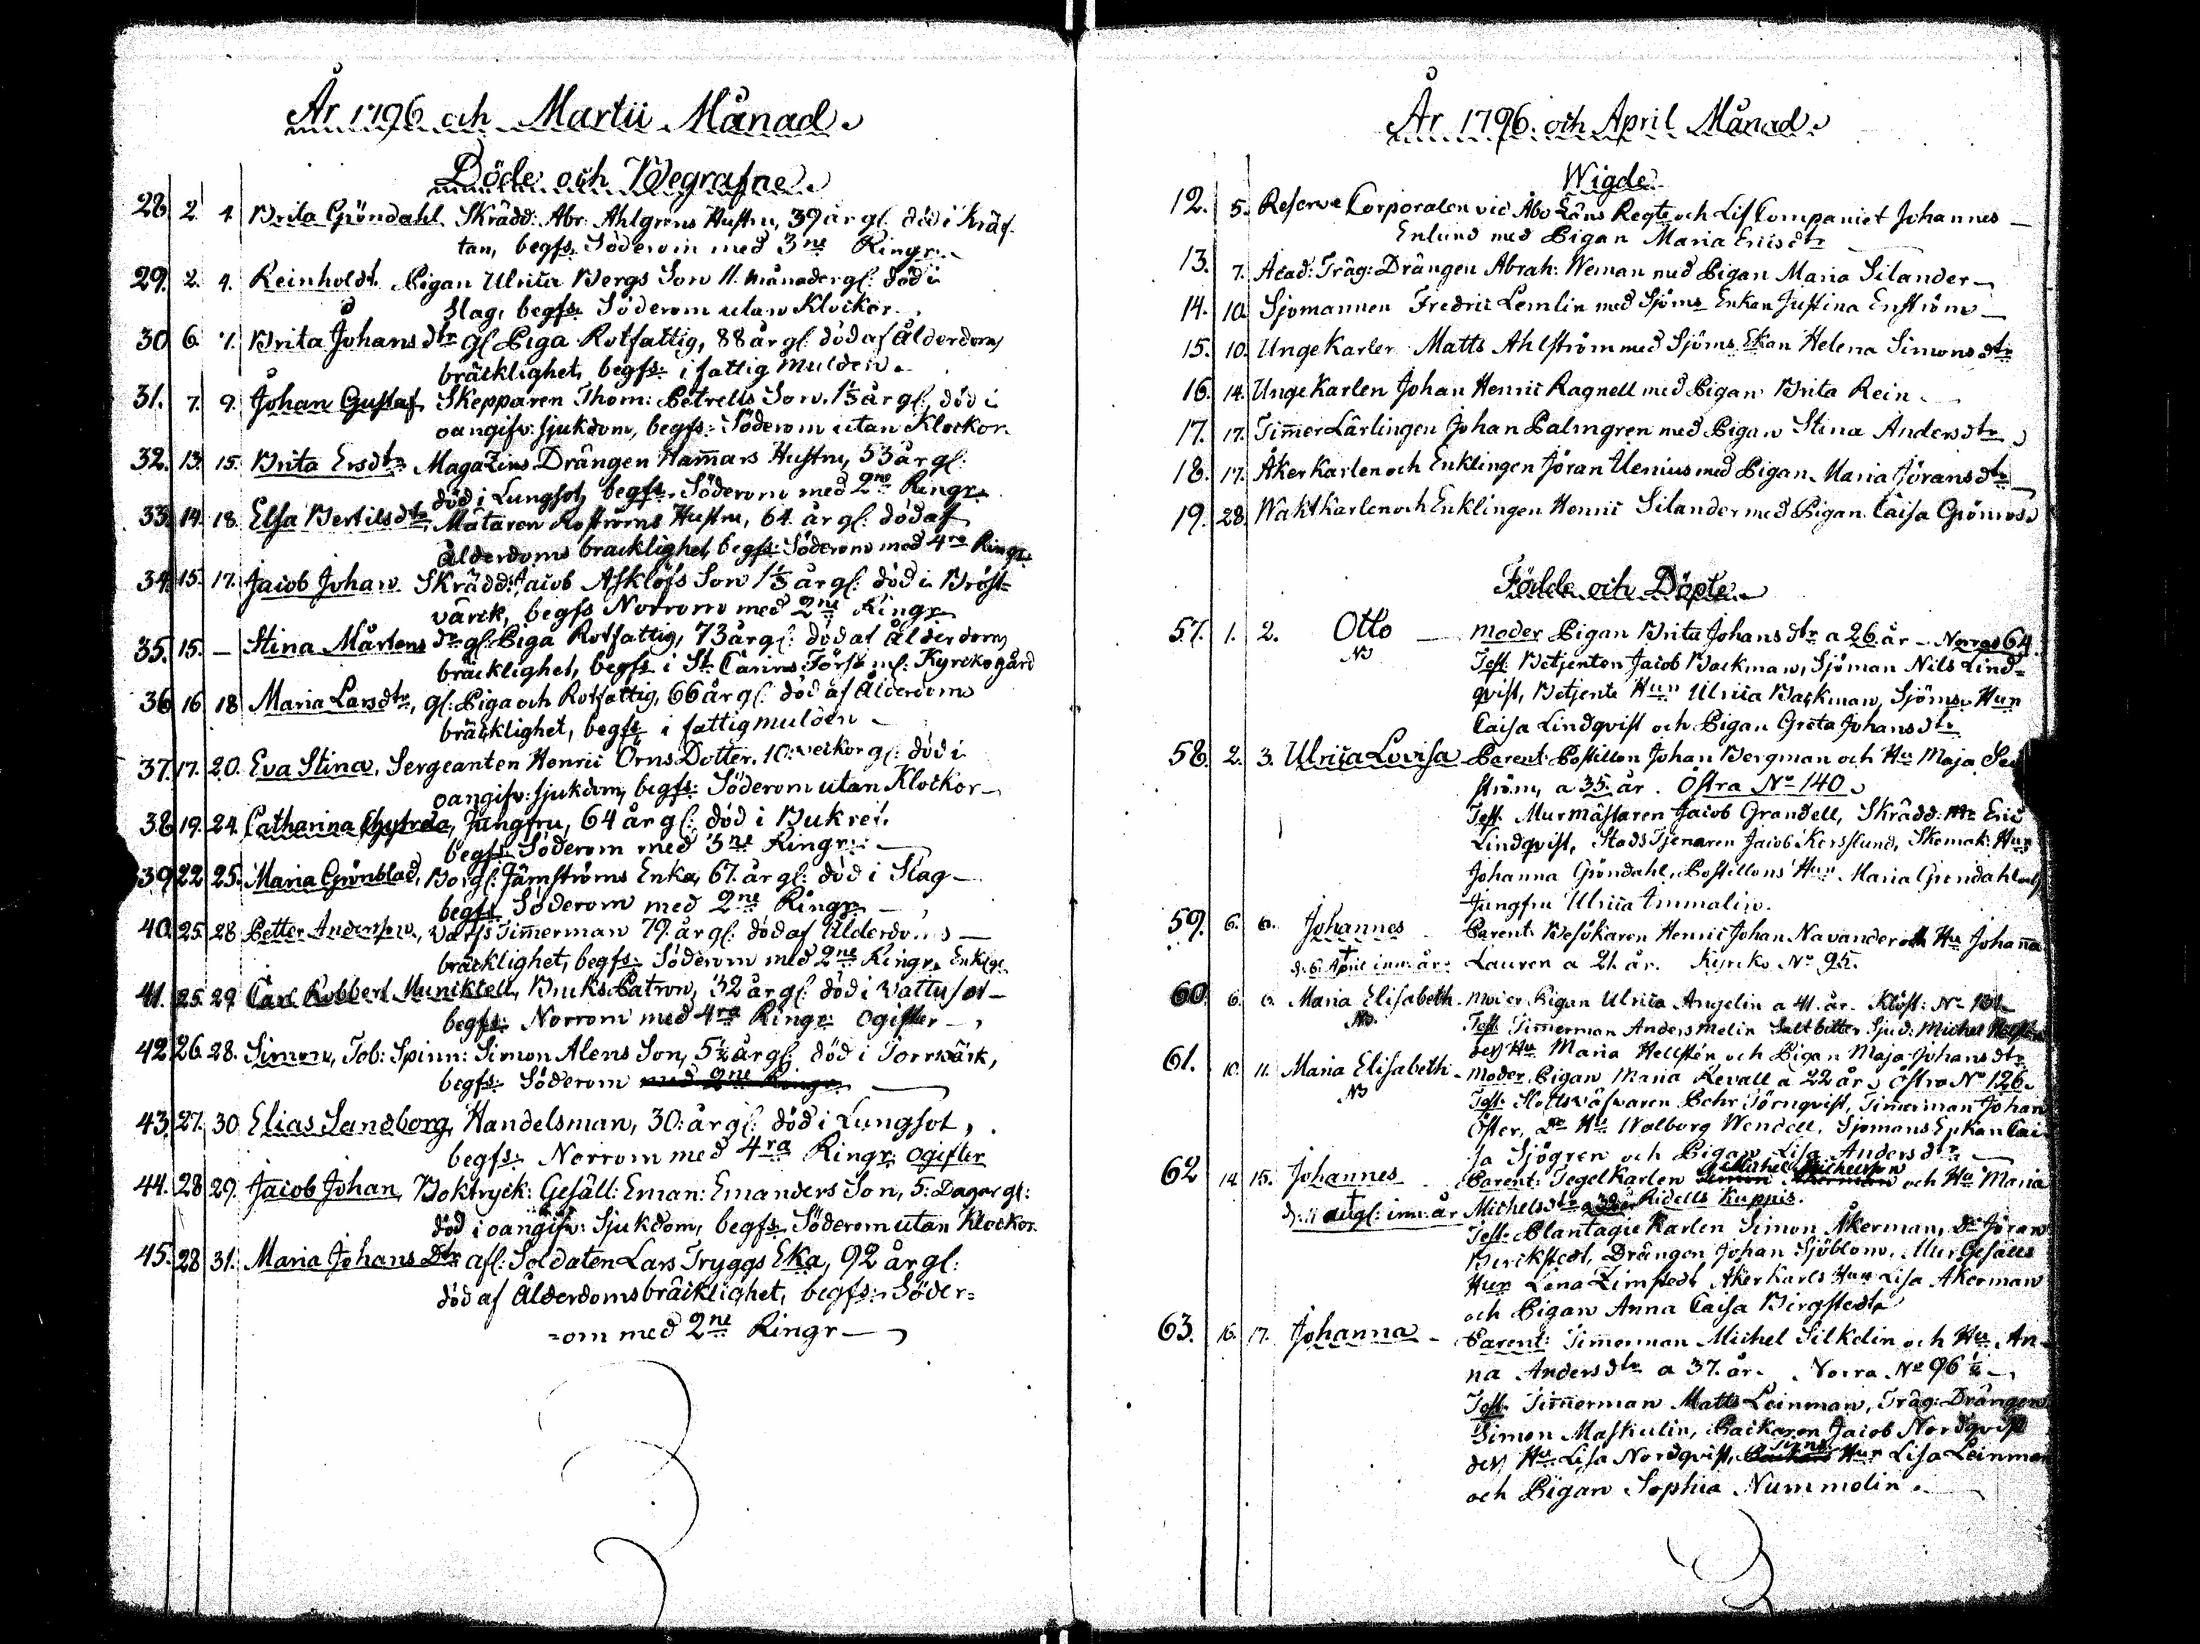 År 1796 och Martii Månad.
Döde och Begrafne.
28. 2. 4. Brita Gröndahl Skrädd: Abr: Ahlgrens Hustru, 39 år gl. död i Kräf-
tan, begfs. Söderom med 3ne Ringr.
29. 2. 4. Reinholdt Pigan Ulrica Bergs Son 11. månader gl: död i
Slag, begfs. Söderom utan Klockor.
30 6. 7. Brita Johans dtr gl Piga Rotfattig, 88 år gl död af Ålderdoms
bräcklighet, begfs: i fattig Mulden.
31. 7. 9. Johan Gustaf Skepparen Thom: Petrells Son. 1½ år gl, död i
oangifv: sjukdom, begfs: Söderom utan Klockor.
32. 13. 15. Brita Ersdtr Magazins Drängen Hammars Hustru, 53 år gl:
död i Lungsot, begfs. Söderom med 2ne Ringr.
33. 14. 18. Elsa Bertils dtr, Mätaren Roströms Hustru, 64. år gl: död af
Ålderdoms bräcklighet, begfs: Söderom med 4ra Ringr.
34. 15. 17. Jacob Johan Skrädd: Jacob Asklöfs Son 1½ år gl: död i Bröst-
värck, begfs Norrom med 2ne Ringr
35. 15. — Stina Mårtens dr gl: Piga Rotfattig, 73 år gl: död af Ålderdoms
bräcklighet, begfs. i St: Carins Förs ml: Kyrckogård
36 16. 18 Maria Larsdtr, gl: Piga och Rotfattig, 66 år gl: död af Ålderdoms
bräcklighet, begfs. i fattigmulden
37. 17. 20. Eva Stina, Sergeanten Henric Örns Dotter, 10: veckor gl: död i
oangifv: sjukdom, begfs: Söderom utan Klockor
38 19. 24. Catharina Jungfru, 64 år gl: död i Bukref.
begfs. Söderom med 3ne Ringr:
39 22 25. Maria Grönblad, Borgl: Järnströms Enka, 67. år gl: död i Slag
begfs. Söderom med 2ne Ringr.
40. 25. 28 Petter Andersson, Varfs Timmerman 79. år gl: död af Ålderdoms
bräcklighet, begfs: Söderom med 2ne Ringr.
41. 25. 29 Carl Robbert Muncktell, Bruks Patron, 32 år gl: död i Vattusot
begfs: Norrom med 4ra Ringr: Ogifter
42 26. 28. Simon, Tob: Spinn: Simon Alens Son, 5½ år gl: död i Torrvärk,
begfs: Söderom med 2ne Ringr
43. 27. 30 Elias Sandborg, Handelsman, 30: år gl: död i Lungsot,
begfs: Norrom med 4ra Ringr: ogifter
44. 28 29. Jacob Johan, Boktryck: Gesäll: Eman: Emanders Son, 5: Dagar gl:
död i oangifv: Sjukdom, begfs. Söderom utan Klockor.
45. 28 31. Maria Johans Dtr afl: Soldaten Lars Tryggs Eka, 92 år gl:
död af Ålderdomsbräcklighet, begfs: Söder=
=om med 2ne Ringr
År 1796. och April Månad.
Wigde
12. 5. Reserve Corporalen vid Åbo Läns Regte och Lif Companiet Johannes
Enlund med Pigan Maria Ericsdtr
13. 7. Acad: Träg: Drängen Abrah: Neman med Pigan Maria Silander
14. 10. Sjömannen Fredric Lemlin med Sjöms Enkan Justina Enström
15. 10. Unge Karlen Matts Ahlström med Sjöms. Ekan Helena Simons dtr
16. 14. Unge Karlen Johan Henric Ragnell med Pigan Brita Rein
17. 17. Timmer Lärlingen Johan Palmgren med Pigan Stina Anders dtr
18. 17. Åker Karlen och Enklingen Jöran Ulenius med Pigan Maria Jörans dtr
19. 28. Wakt Karlen och Enklingen Henric Silander med Pigan Caisa Grönros
Födde och Döpte
57. 1. 2. Otto moder Pigan Brita Johans dtr a 26 år Norra 64.
Nb Test: Betjenten Jacob Backman, Sjöman Nils Lind-
qvist, Betjente Hun Ulrica Backman, Sjöms Hun
Caisa Lindqvist och Pigan Greta Johans dtr
58. 2. 3. Ulrica Lovisa Parent: Postillon Johan Bergman och Hu Maja
ström, a 35. år. Östra No 140
Test. Murmästaren Jacob Grandell, Skrädd: Mr Eric
Lindqvist, Stads Tjenaren Jacob Korsslund, Skomak: Hun
Johanna Gröndahl, Postillons Hun Maria Gröndahl och
Jungfru Ulrica Ammalin.
59. 6. 6. Johannes Parent Besökaren Henric Johan Navander och Hu Johanna
d: 6 April inn: år: Lauren a 21. år. Kyrcko No 95.
60. 6. 6. Maria Elisabeth Moder Pigan Ulrica Angelin a 41. år. Klöst: No 131
Nb. Test Timmerman Anders Melin Saltbitter Sjud: Michel
des Hu Maria Hellstén och Pigan Maja Johans dtr
61. 10. 11. Maria Elisabeth moder Pigan Maria Revall a 22 år Östra No 126.
Nb Test. Pehr Törnqvist, Timmerman Johan
Öster, Dr Hu Walborg Wendell, Sjömans Enkan Cai-
sa Sjögren och Pigan Lisa Anders dtr
62 14 15. Johannes Parent: Tegel Karlen Michel Michelsson Simon Åkerman och Hu Maria
d: 11 augl: inn: år Michelsdtr a 32 år Ridells Kuppis.
Test. Plantagie Karlen Simon Åkerman, Dr Jöran
Berckstedt, Drängen Johan Sjöblom, Mur Gesälls
Hun Lena Zimstedt Åker Karls Hun Lisa Åkerman
och Pigan Anna Caisa Bergstedt
63. 16. 17. Johanna Parent: Timmerman Michel Silkelin och Hu An-
na Anders dtr a 37. år. Norra No 96½
Test. Timmerman Matts Leinman, Träg: Drängen
Simon Maskulin, Backaren Jacob Nordqvist
des Hu Lisa Nordqvist, Hun Lisa Leinman
och Pigan Sophia Nummelin.